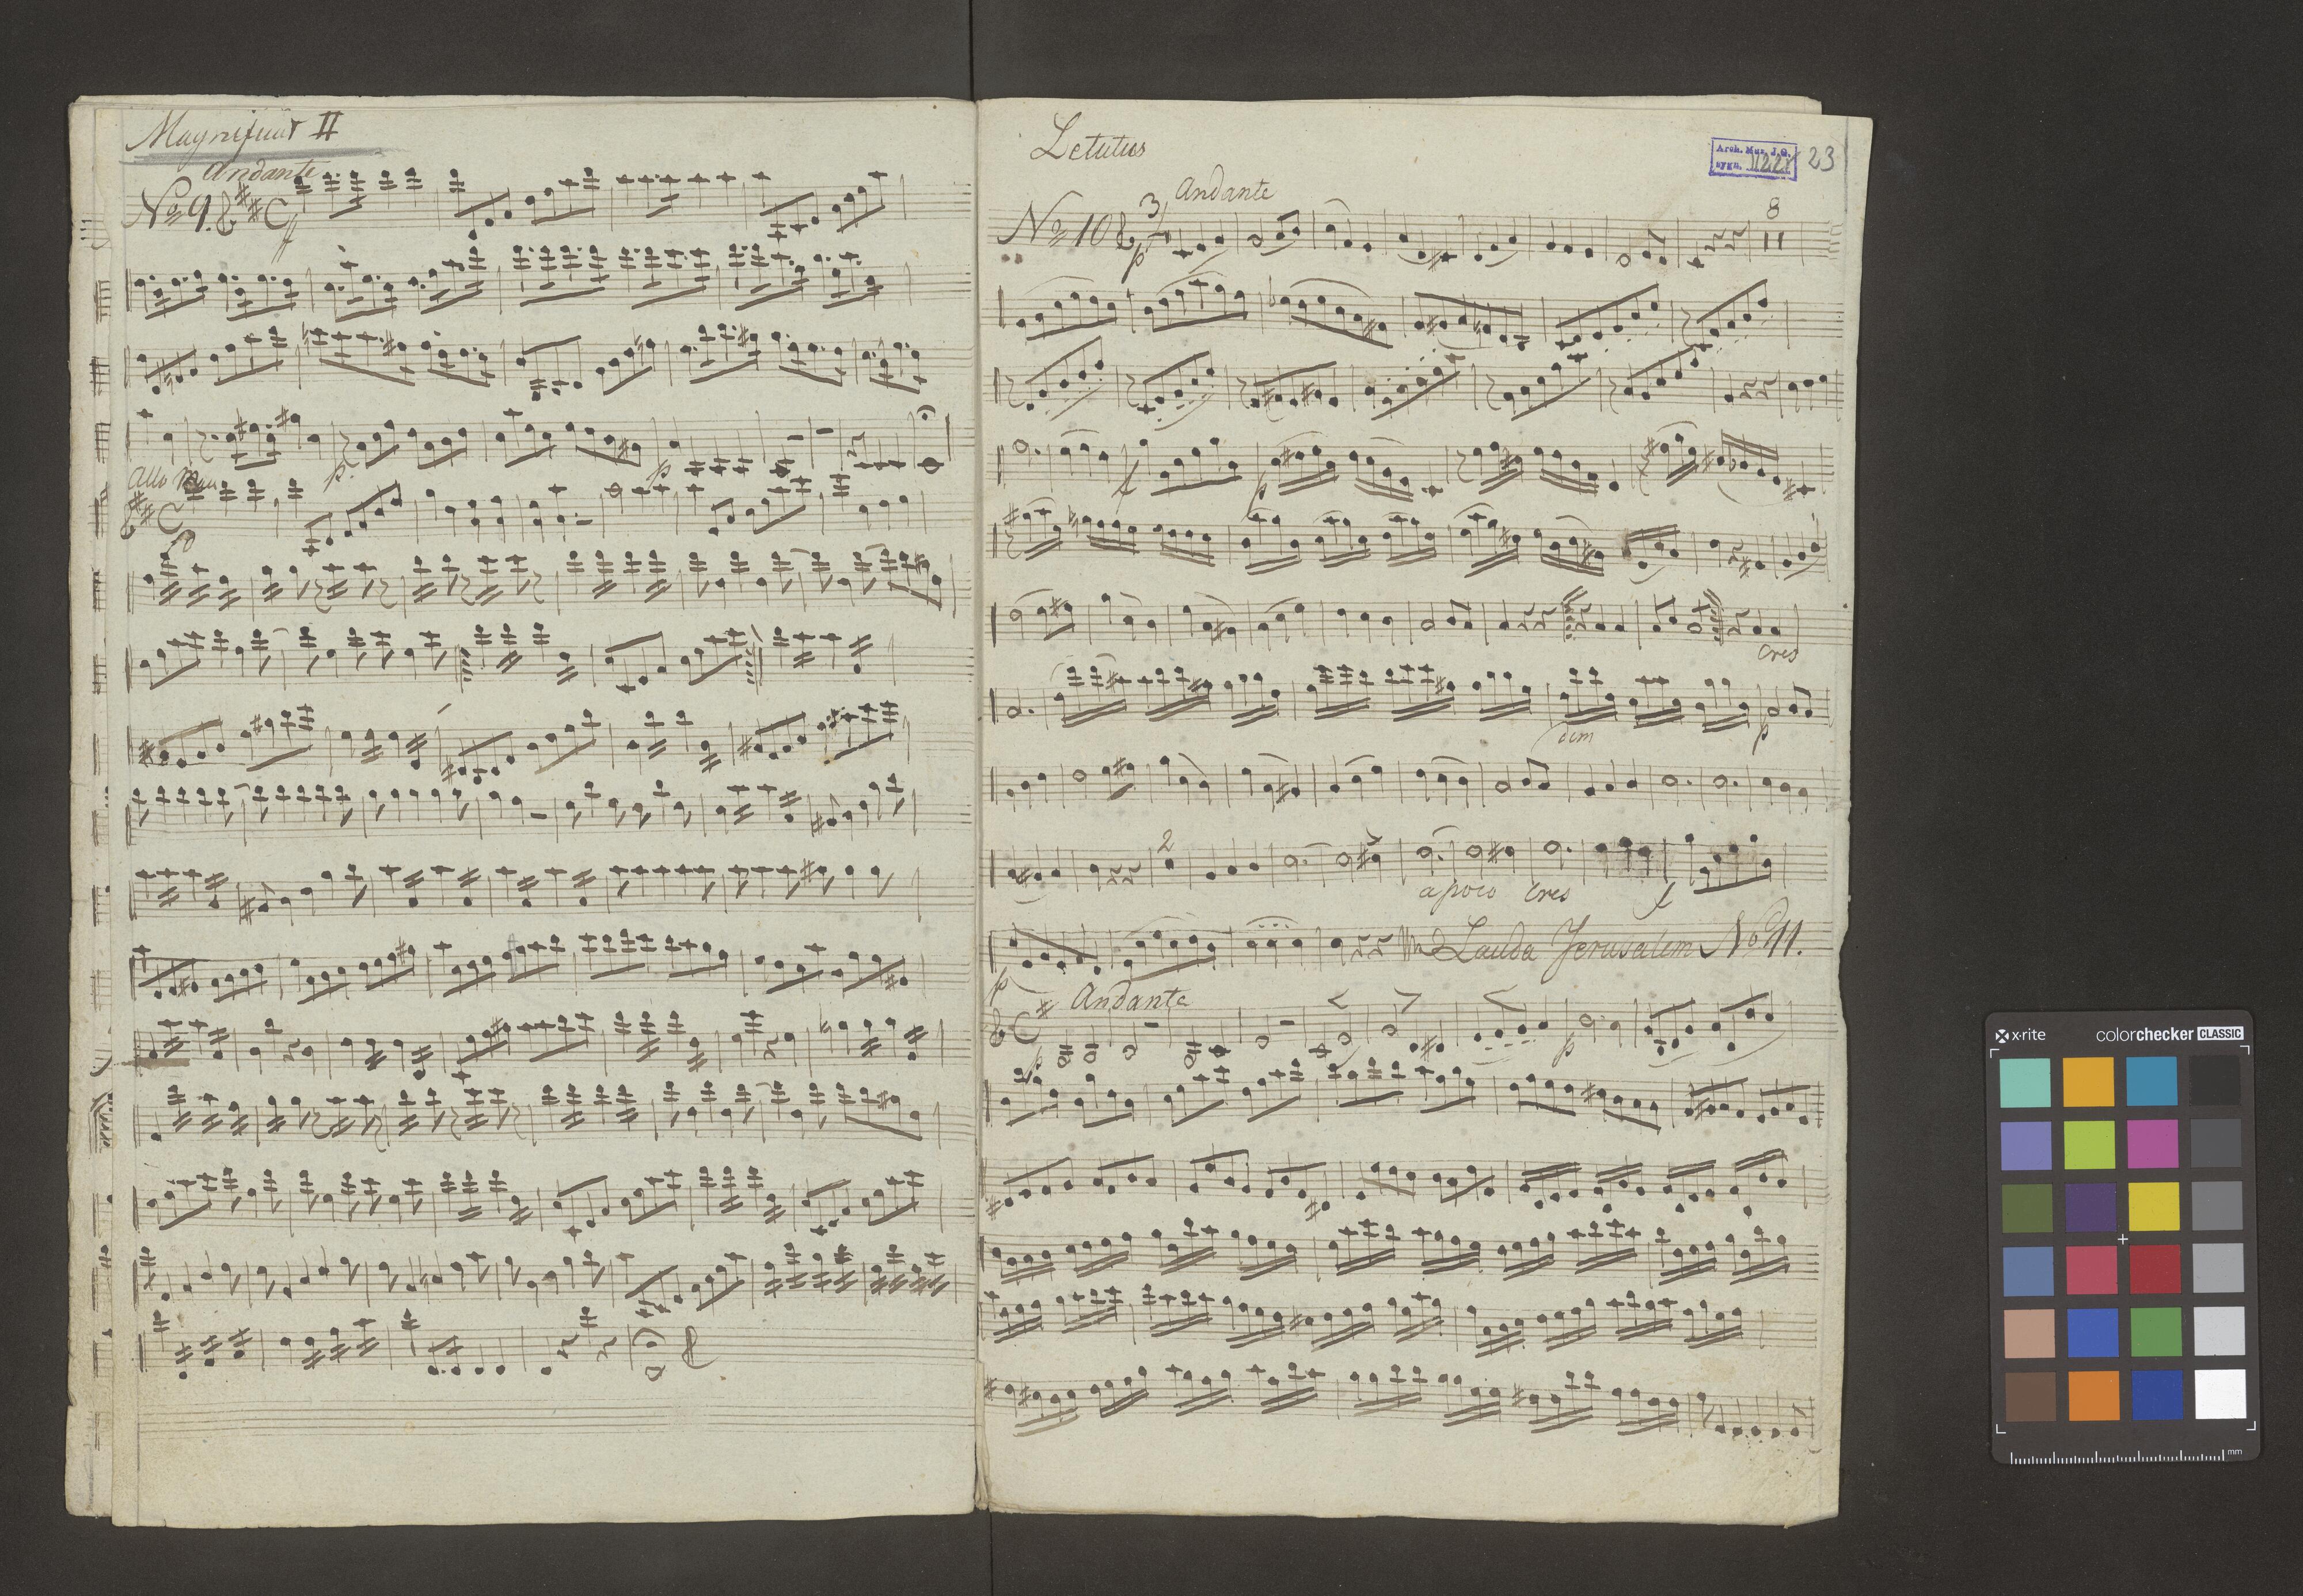 Magnificat II
Andante
No 9.
ff
p.
p
Allo
Letutus
Arch. Muz. J. G.
sygn.
23
3/
Andante
8
No 10
p
f
p
cres
dim
p
2
a poco cres
f
p
Lauda Jerusalem No 11.
Andante
p
p
x-rite
colorchecker CLASSIC
mm